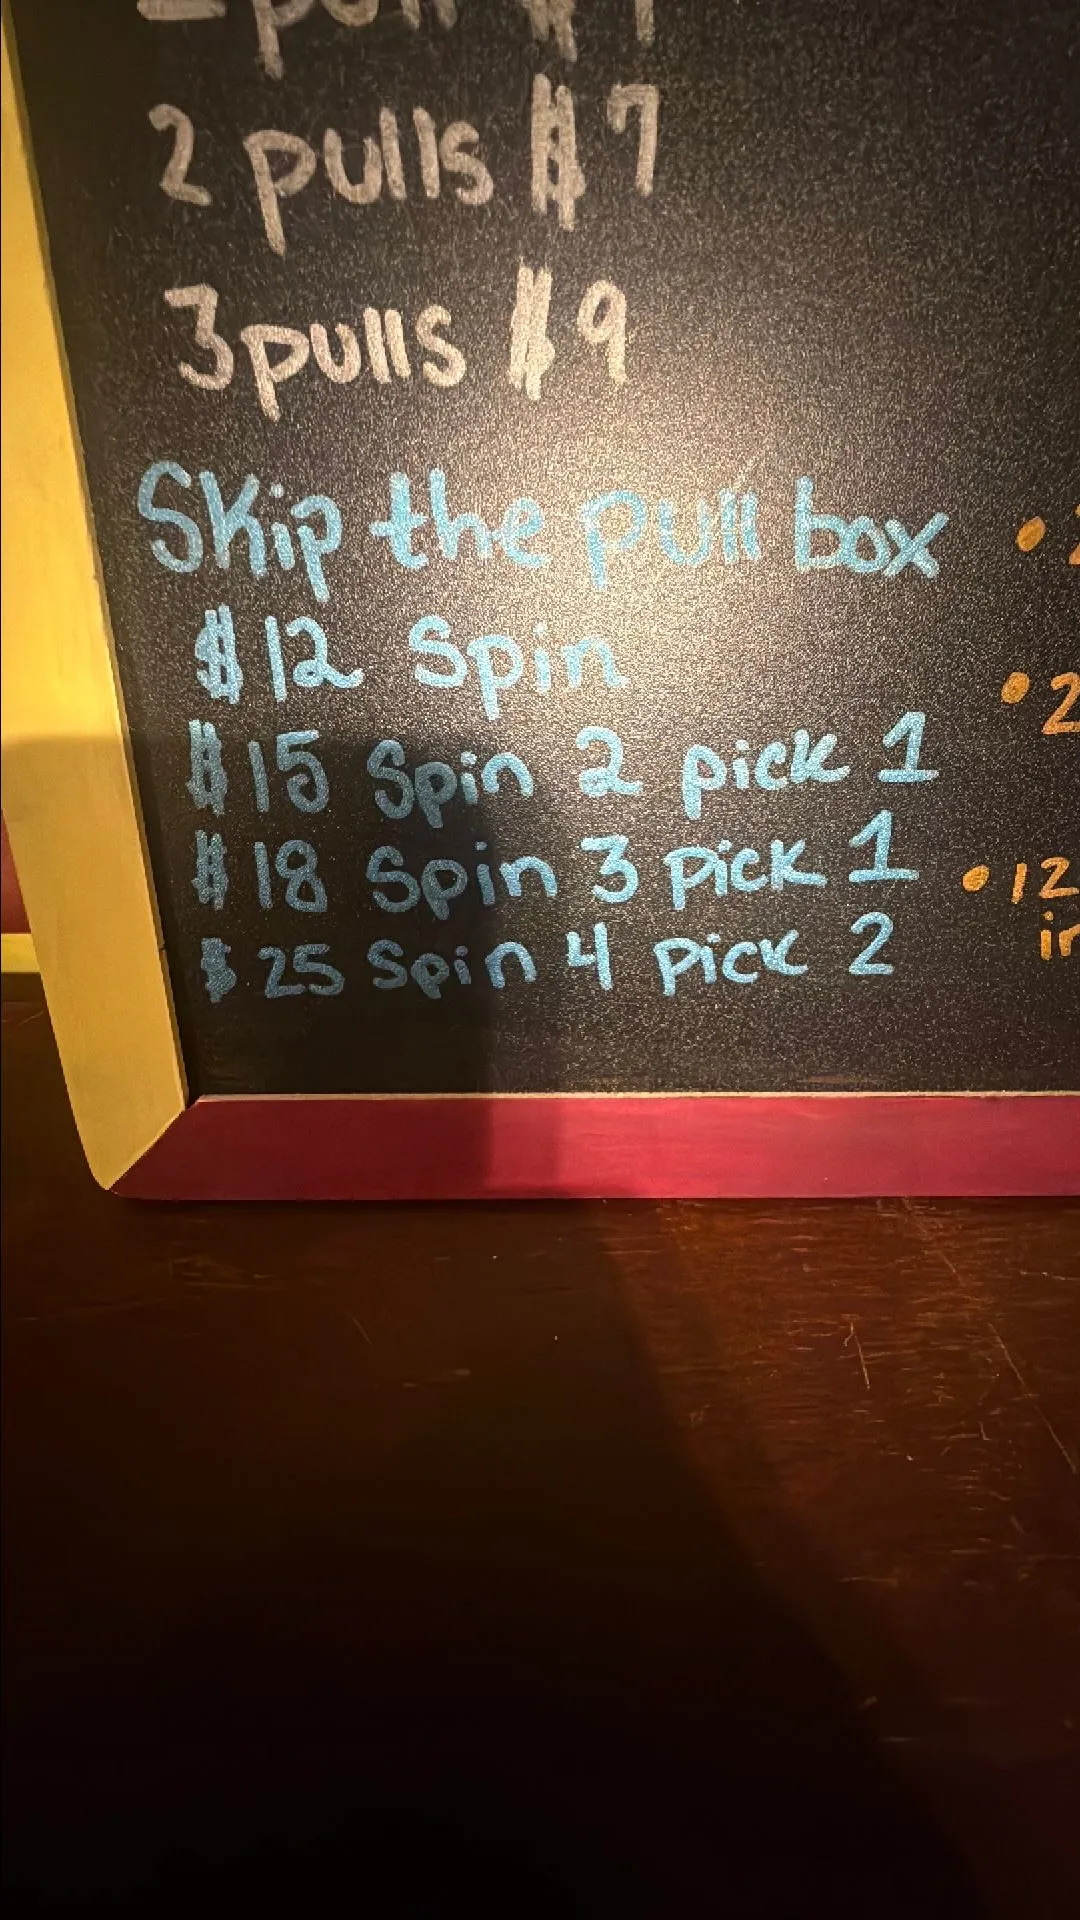 pull $
2 pulls $7
3 pulls $9
Skip the pull box
$12 Spin
$15 Spin 2 pick 1
$18 Spin 3 pick 1
$25 Spin 4 pick 2
• 2
• 12